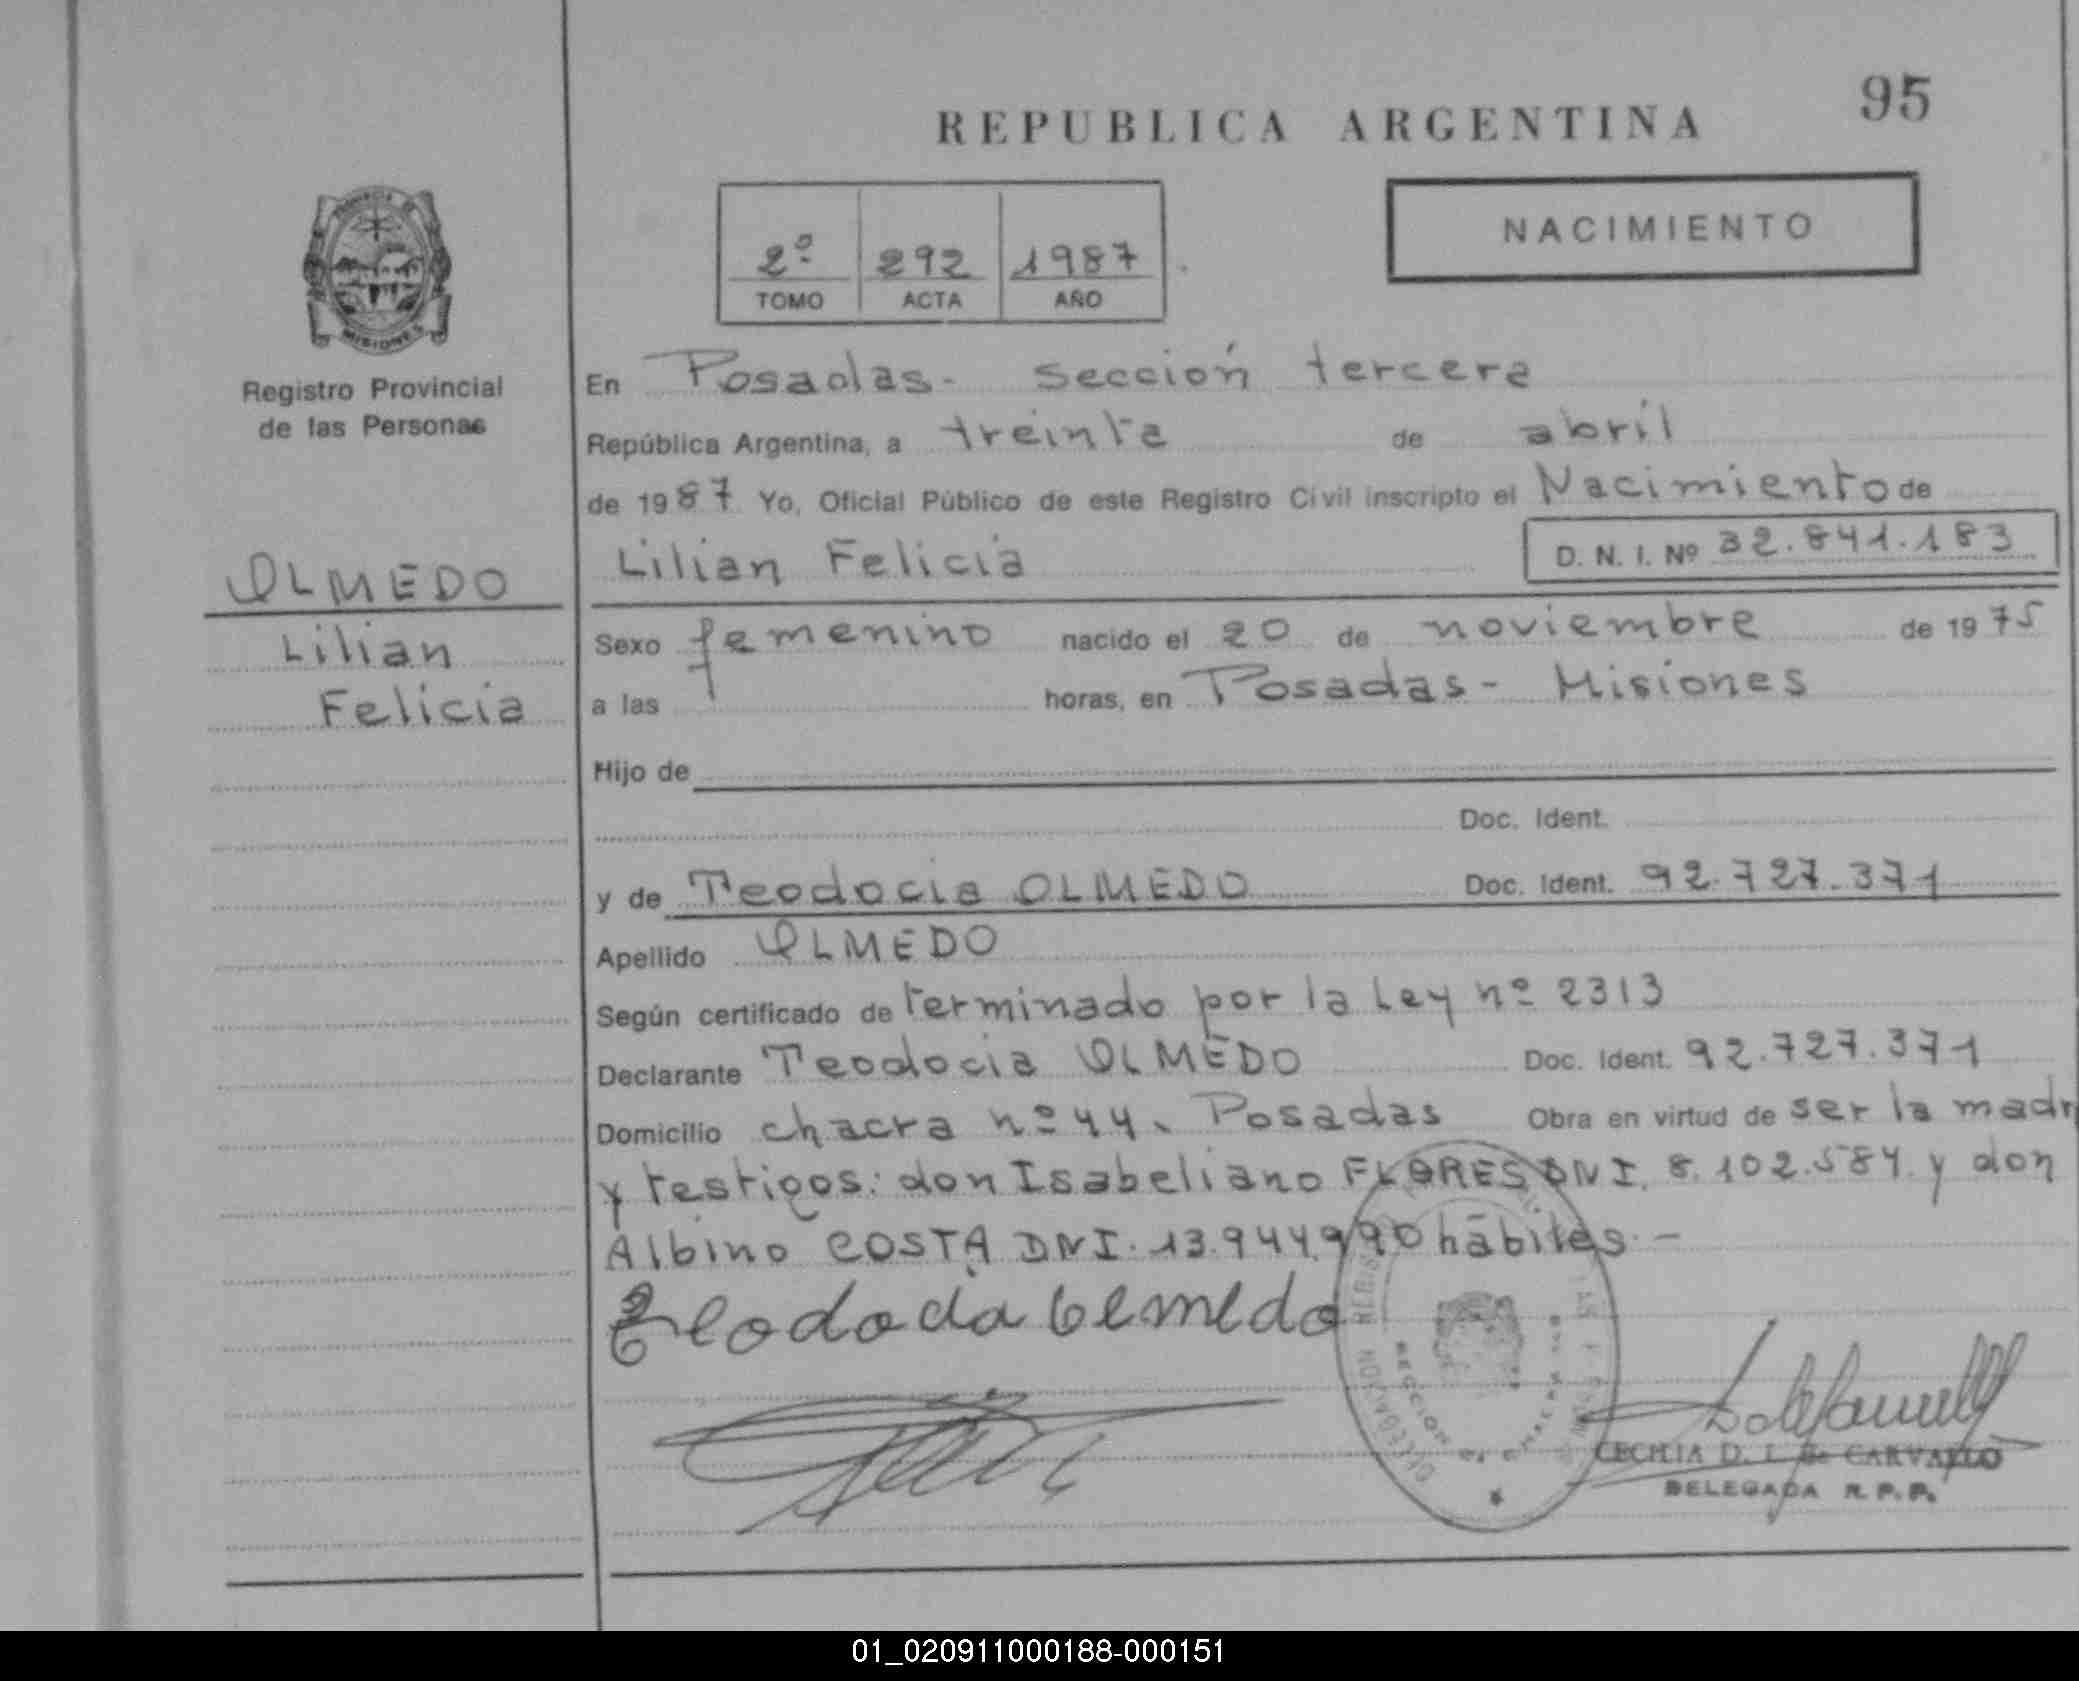 95
REPUBLICA ARGENTINA
NACIMIENTO
2º 292 1987
TOMO ACTA AÑO
MISIONES
Registro Provincial
de las Personas
OLMEDO
Lilian
Felicia
En Posadas - sección tercera
República Argentina, a treinta de abril
de 1987 Yo, Oficial Público de este Registro Civil inscripto el Nacimiento de
Lilian Felicia D. N. I. Nº 32.841.183
Sexo femenino nacido el 20 de noviembre de 1975
a las horas, en Posadas - Misiones
Hijo de
Doc. Ident.
y de Teodocia OLMEDO Doc. Ident. 92.727.371
Apellido OLMEDO
Según certificado de terminado por la Ley nº 2313
Declarante Teodocia OLMEDO Doc. Ident. 92.727.371
Domicilio chacra nº 44 - Posadas Obra en virtud de ser la madr
y testigos: don Isabeliano FLORES DNI. 8.102.584 y don
Albino COSTA DNI. 13.944.990 hábiles. -
Teodocia Olmedo
CECILIA D. L. de CARVALLO
DELEGADA R. P. P.
01_020911000188-000151